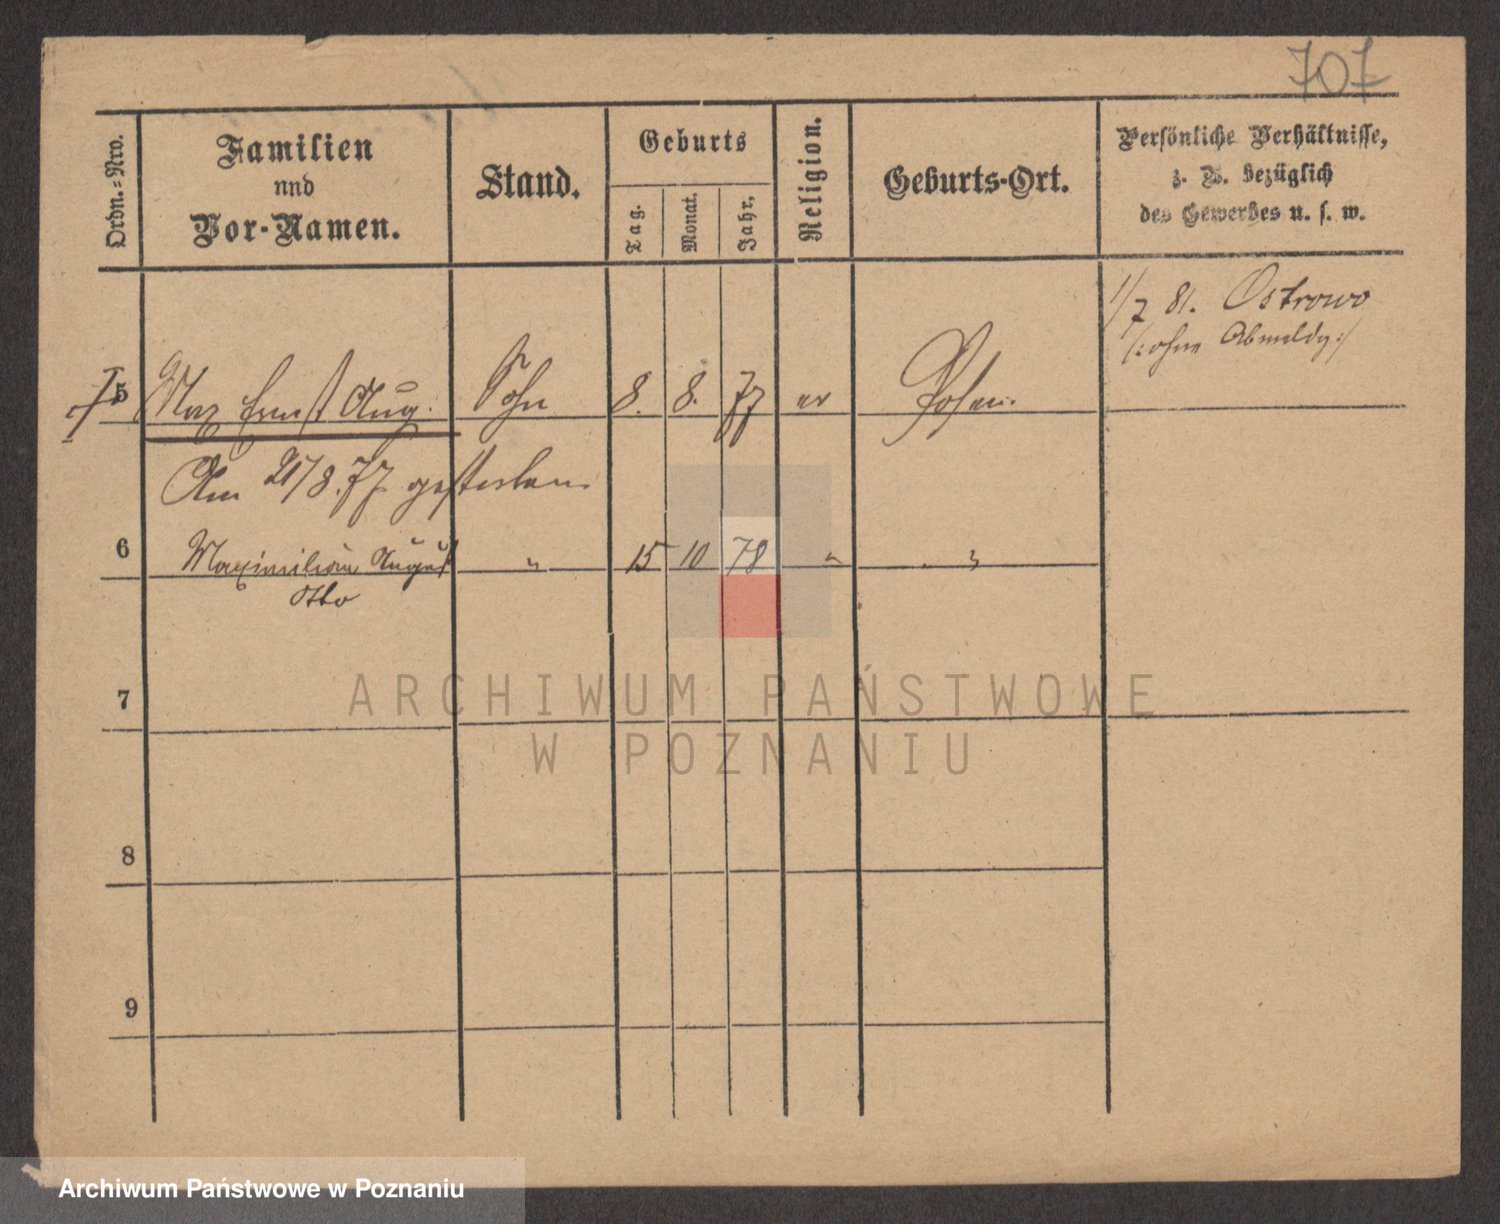 707
Ordn.=Nro.
Familien
nnd
Vor-Namen.
Stand.
Geburts
Tag.
Monat.
Jahr.
Religion.
Geburts-Ort.
Persönliche Verhältnisse,
z. B. bezüglich
des Gewerbes u. s. w.
1/7 81. Ostrowo
/: ohne Abmeldg :/
† 5 Max Ernst Aug. Sohn 8. 8. 77 ev Posen.
Am 21/8. 77 gestorben.
6 Maximilian August " 15 10 78 " "
Otto
7
ARCHIWUM PAŃSTWOWE
W POZNANIU
8
9
Archiwum Państwowe w Poznaniu